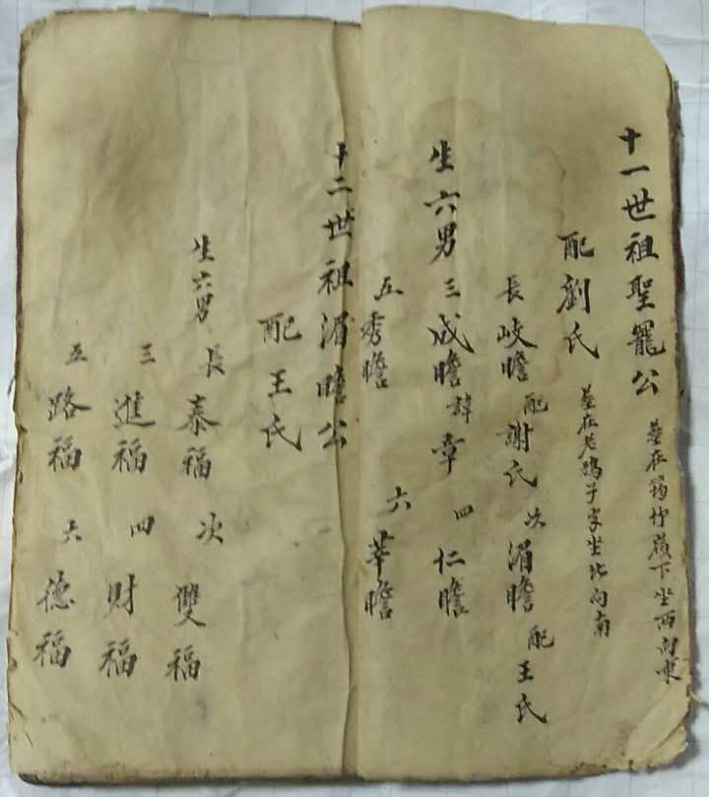 十一世祖聖罷公 墓在 嶺下坐西向東
配劉氏 墓在老鴉子冢坐北向南
長岐瞻配謝氏 次湄瞻配王氏
生六男 三成瞻諱章 四仁瞻
五秀瞻 六莘瞻
十二世祖湄瞻公
配王氏
生六男 長泰福 次雙福
三進福 四财福
五路福 六德福